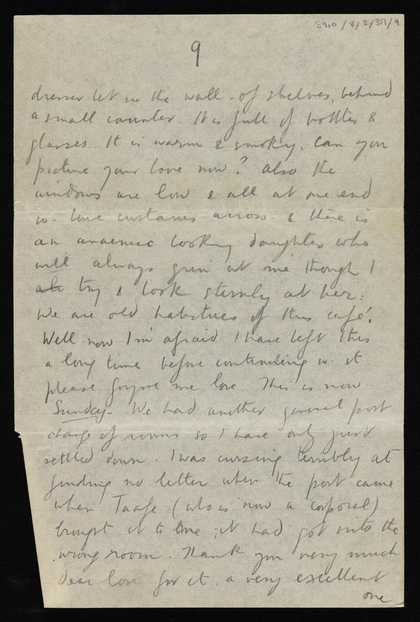 9
dresser let in the wall - of shelves, behind
a small counter. It is full of bottles &
glasses. It is warm & smoky. Can you
picture your love now? Also the
windows are low & all at one end
w. lace curtains across & there is
an anaemic looking daughter who
will always grin at me though I
try & look sternly at her:
We are old habitues of this café.
Well now I'm afraid I have left this
a long time before continuing w. it
please forgive me love. This is now
Sunday. We had another general post
change of rooms so I have only just
settled down. I was cursing terribly at
finding no letter when the post came
when Taafe (who is now a corporal)
brought it to me; it had got into the
wrong room. Thank you very much
dear love for it. a very excellent
one